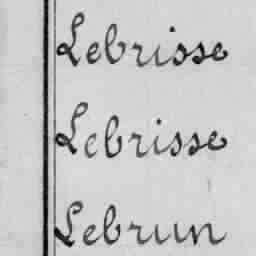 Lebrisse
Lebrisse
Lebrun